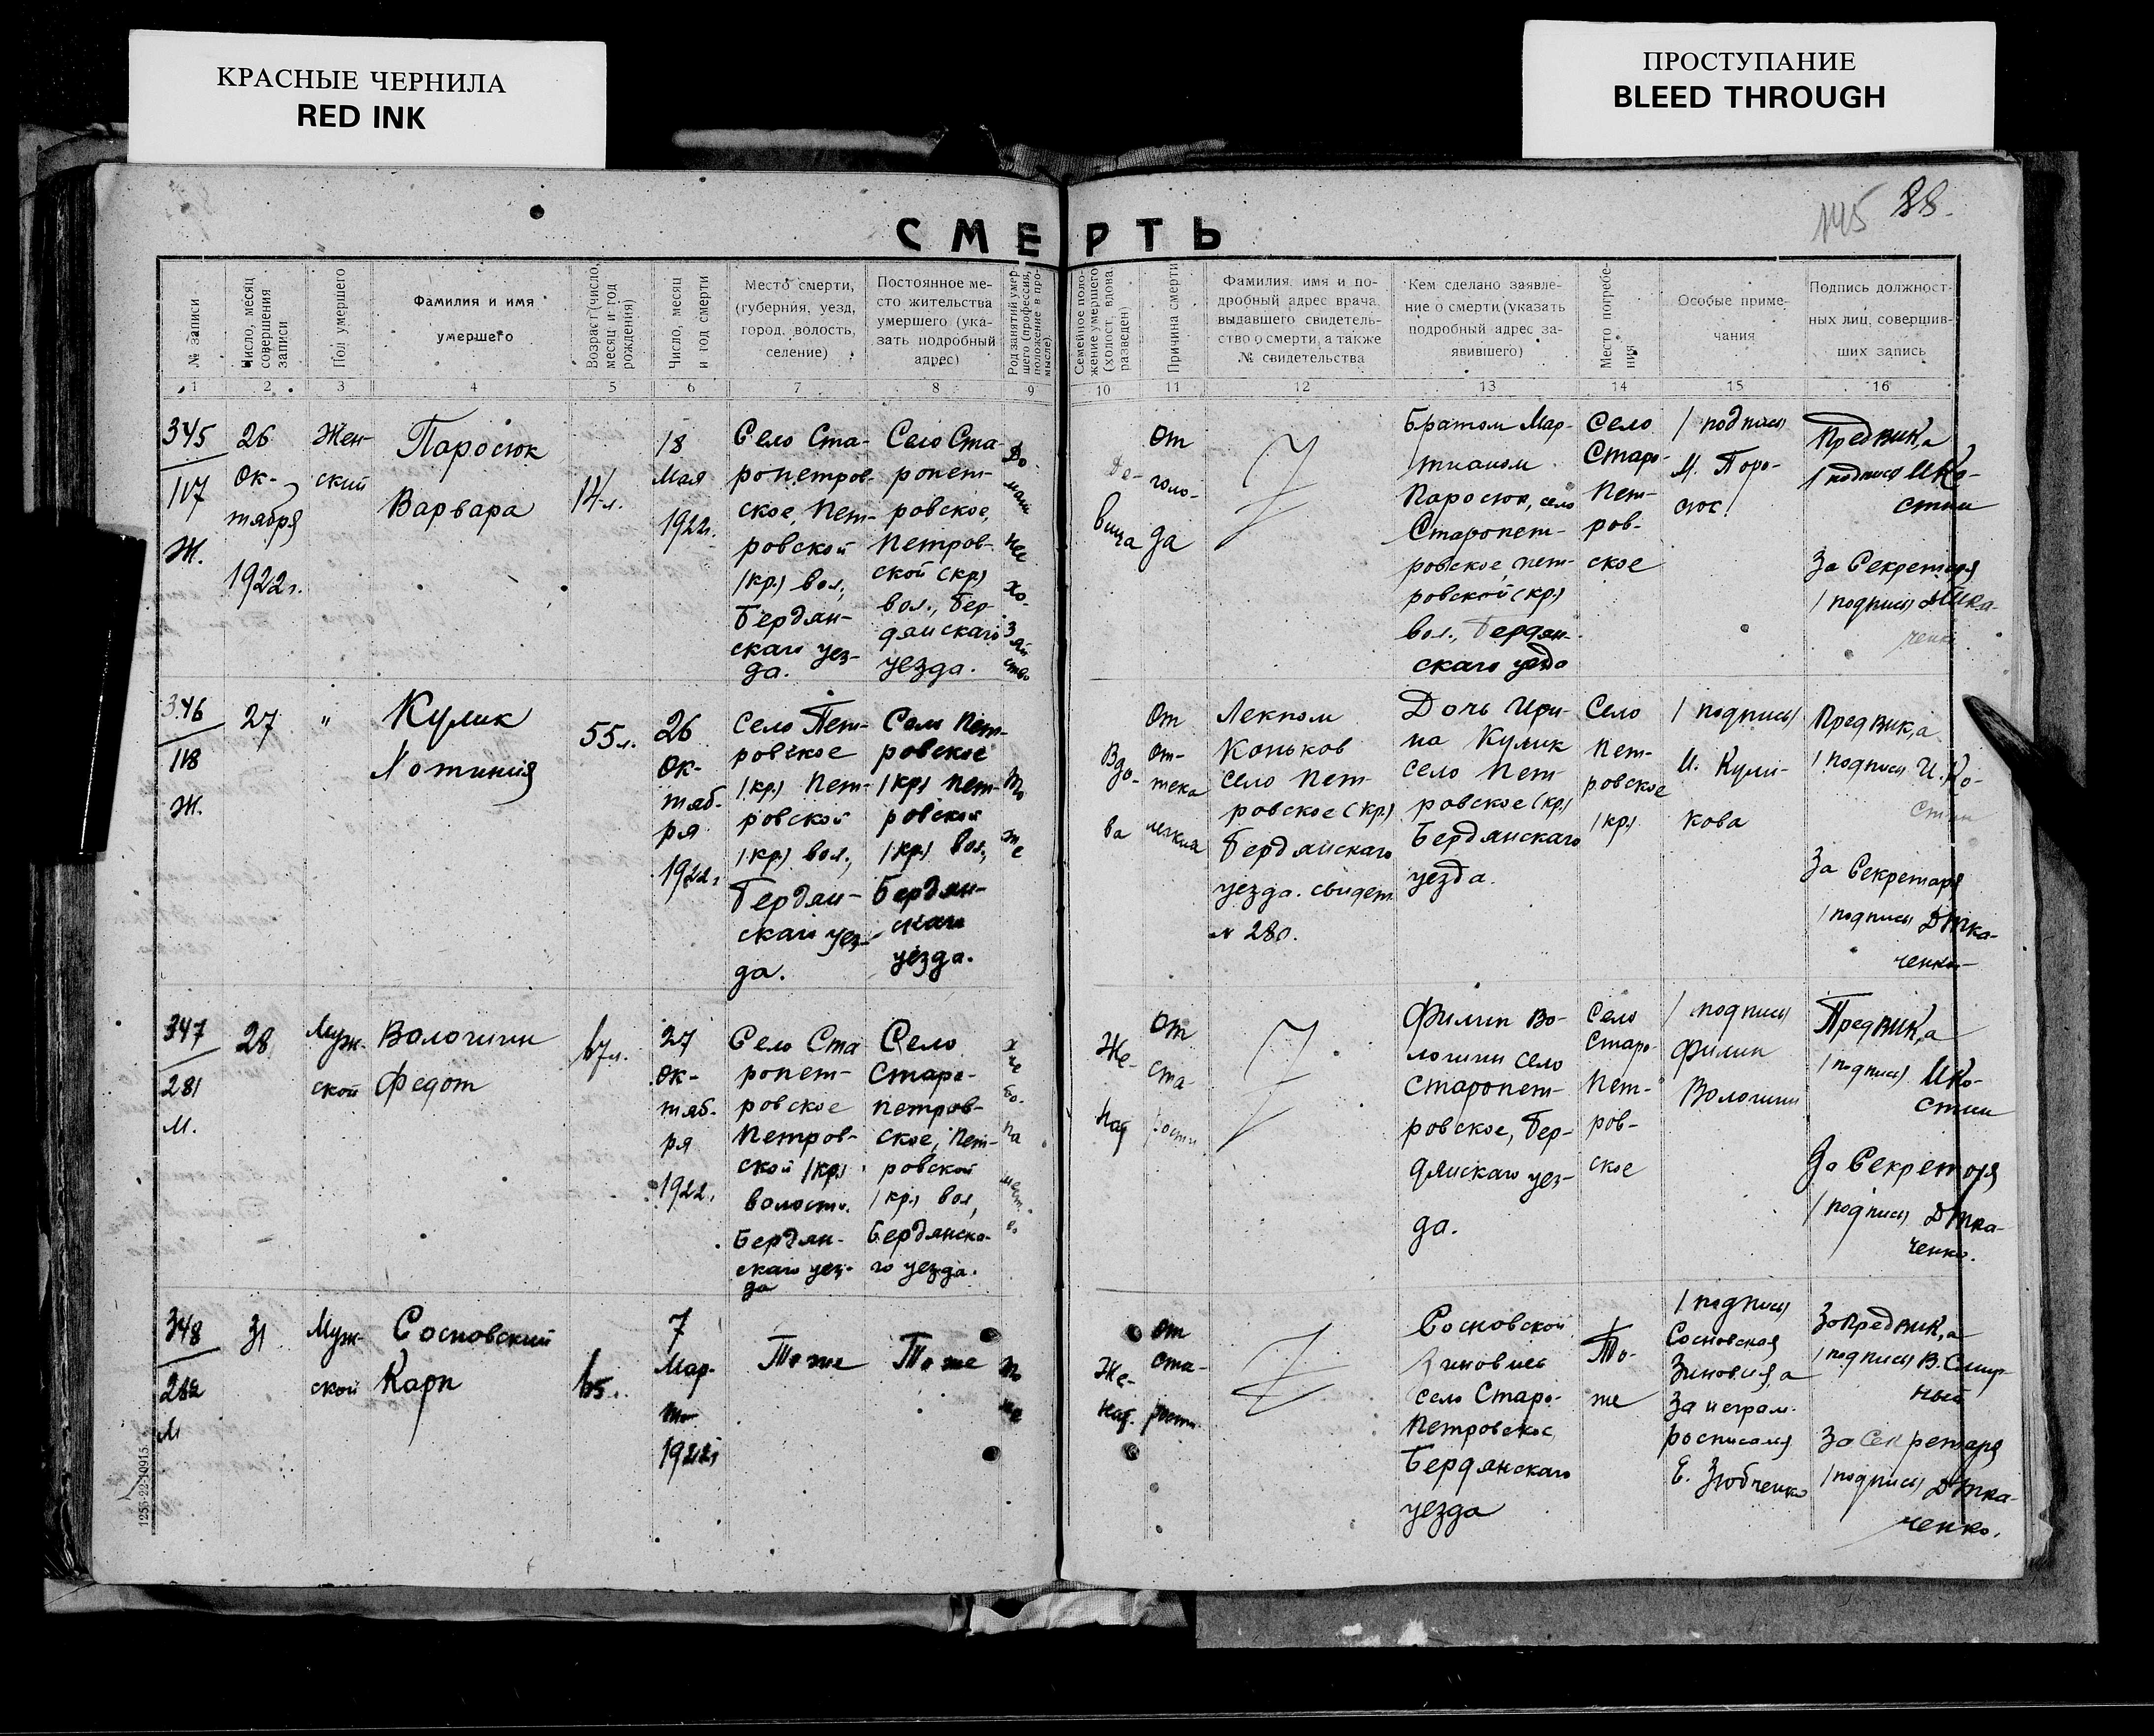 КРАСНЫЕ ЧЕРНИЛА
RED INK
ПРОСТУПАНИЕ
BLEED THROUGH
145 88.
СМЕРТЬ
№ записи
Число, месяц
совершения
записи
Пол умершего
Фамилия и имя
умершего
Возраст (число,
месяц и год
рождения)
Число, месяц
и год смерти
Место смерти,
(губерния, уезд,
город, волость,
селение)
Постоянное ме-
сто жительства
умершего (ука-
зать подробный
адрес)
Род занятий умер-
шего (профессия,
положение в про-
мысле).
Семейное поло-
жение умершего
(холост, вдова,
разведен)
Причина смерти
Фамилия, имя и по-
дробный адрес врача,
выдавшего свидетель-
ство о смерти, а также
№ свидетельства
Кем сделано заявле-
ние о смерти (указать
подробный адрес за-
явившего)
Место погребе-
ния
Особые приме-
чания
Подпись должност-
ных лиц, совершив-
ших запись
1 2 3 4 5 6 7 8 9 10 11 12 13 14 15 16
345
117
Ж.
26
Ок-
тября
1922г.
Жен-
ский
Паросюк
Варвара
14л.
18
Мая
1922г.
Село Ста-
ропетров-
ское, Пет-
ровской
(кр.) вол.,
Бердян-
скаго уез-
да.
Село Ста-
ропет-
ровское,
Петров-
ской (кр)
вол., Бер-
дянскаго
уезда.
До-
маш
нее
хо-
зяй
ство
Де-
вица
От
голо-
да
Братом Мар-
тианом
Паросюк, село
Старопет-
ровское, пет-
ровской (кр.)
вол., Бердян-
скаго уезда
Село
Старо-
Пет-
ров-
ское
(подпись)
М. Паро-
сюк
Предвик,а
(подпись) И Ко-
стин
За Секретаря
(подпись) Д Тка-
ченко
346
118
Ж.
27
"
Кулик
Хотиния
55л.
26
Ок-
тяб-
ря
1922г
Село Пет-
ровское
(кр.) Пет-
ровской
(кр.) вол.,
Бердян-
скаго уез-
да.
Село Пет-
ровское
(кр) Пет-
ровской
(кр.) вол.,
Бердян-
скаго
уезда.
То
же
Вдо-
ва
От
от-
тека
легких
Лекпом
Коньков
село Пет-
ровское (кр.)
Бердянскаго
уезда. свидет.
№ 280.
Дочь Ири-
на Кулик
село Пет-
ровское (кр.)
Бердянскаго
уезда.
Село
Пет-
ровское
(кр.)
(подпись)
И. Кули-
кова
Предвик,а
(подпись) И. Ко-
стин
За Секретаря
(подпись) Д Тка-
ченко
347
281
М.
28
Муж-
ской
Вологини
Федот
67л.
27
Ок-
тяб-
ря
1922.
Село Ста
ропет-
ровское
Петров-
ской (кр.)
волости.
Бердян-
скаго уез-
да
Село
Старо-
петров-
ское, Пет-
ровской
(кр.) вол,
Бердянска-
го уезда.
Же-
нат
От
ста-
рости
Филип Во-
логини село
Старопет-
ровское, Бер-
дянскаго уез-
да.
Село
Старо-
Пет-
ров-
ское
(подпись)
Филип
Вологини
Предвик,а
(подпись) И Ко-
стин
За Секретаря
(подпись) Д Тка-
ченко.
348
282
М
31
Муж-
ской
Сосновский
Карп
65.
7
Мар-
та
1922г
То же
То же
То
же
Же-
нат.
От
ста-
рости.
Сосновской
Зиновией
село Старо-
Петровское,
Бердянскаго
уезда
То-
же
(подпись)
Сосновская
Зиновия, а
За неграм.
росписался
Е. Зюбченко
Зопредвик,а
(подпись) В. Смир-
ный
За Секретаря
(подпись) Д Тка-
ченко.
1253-22-10915.